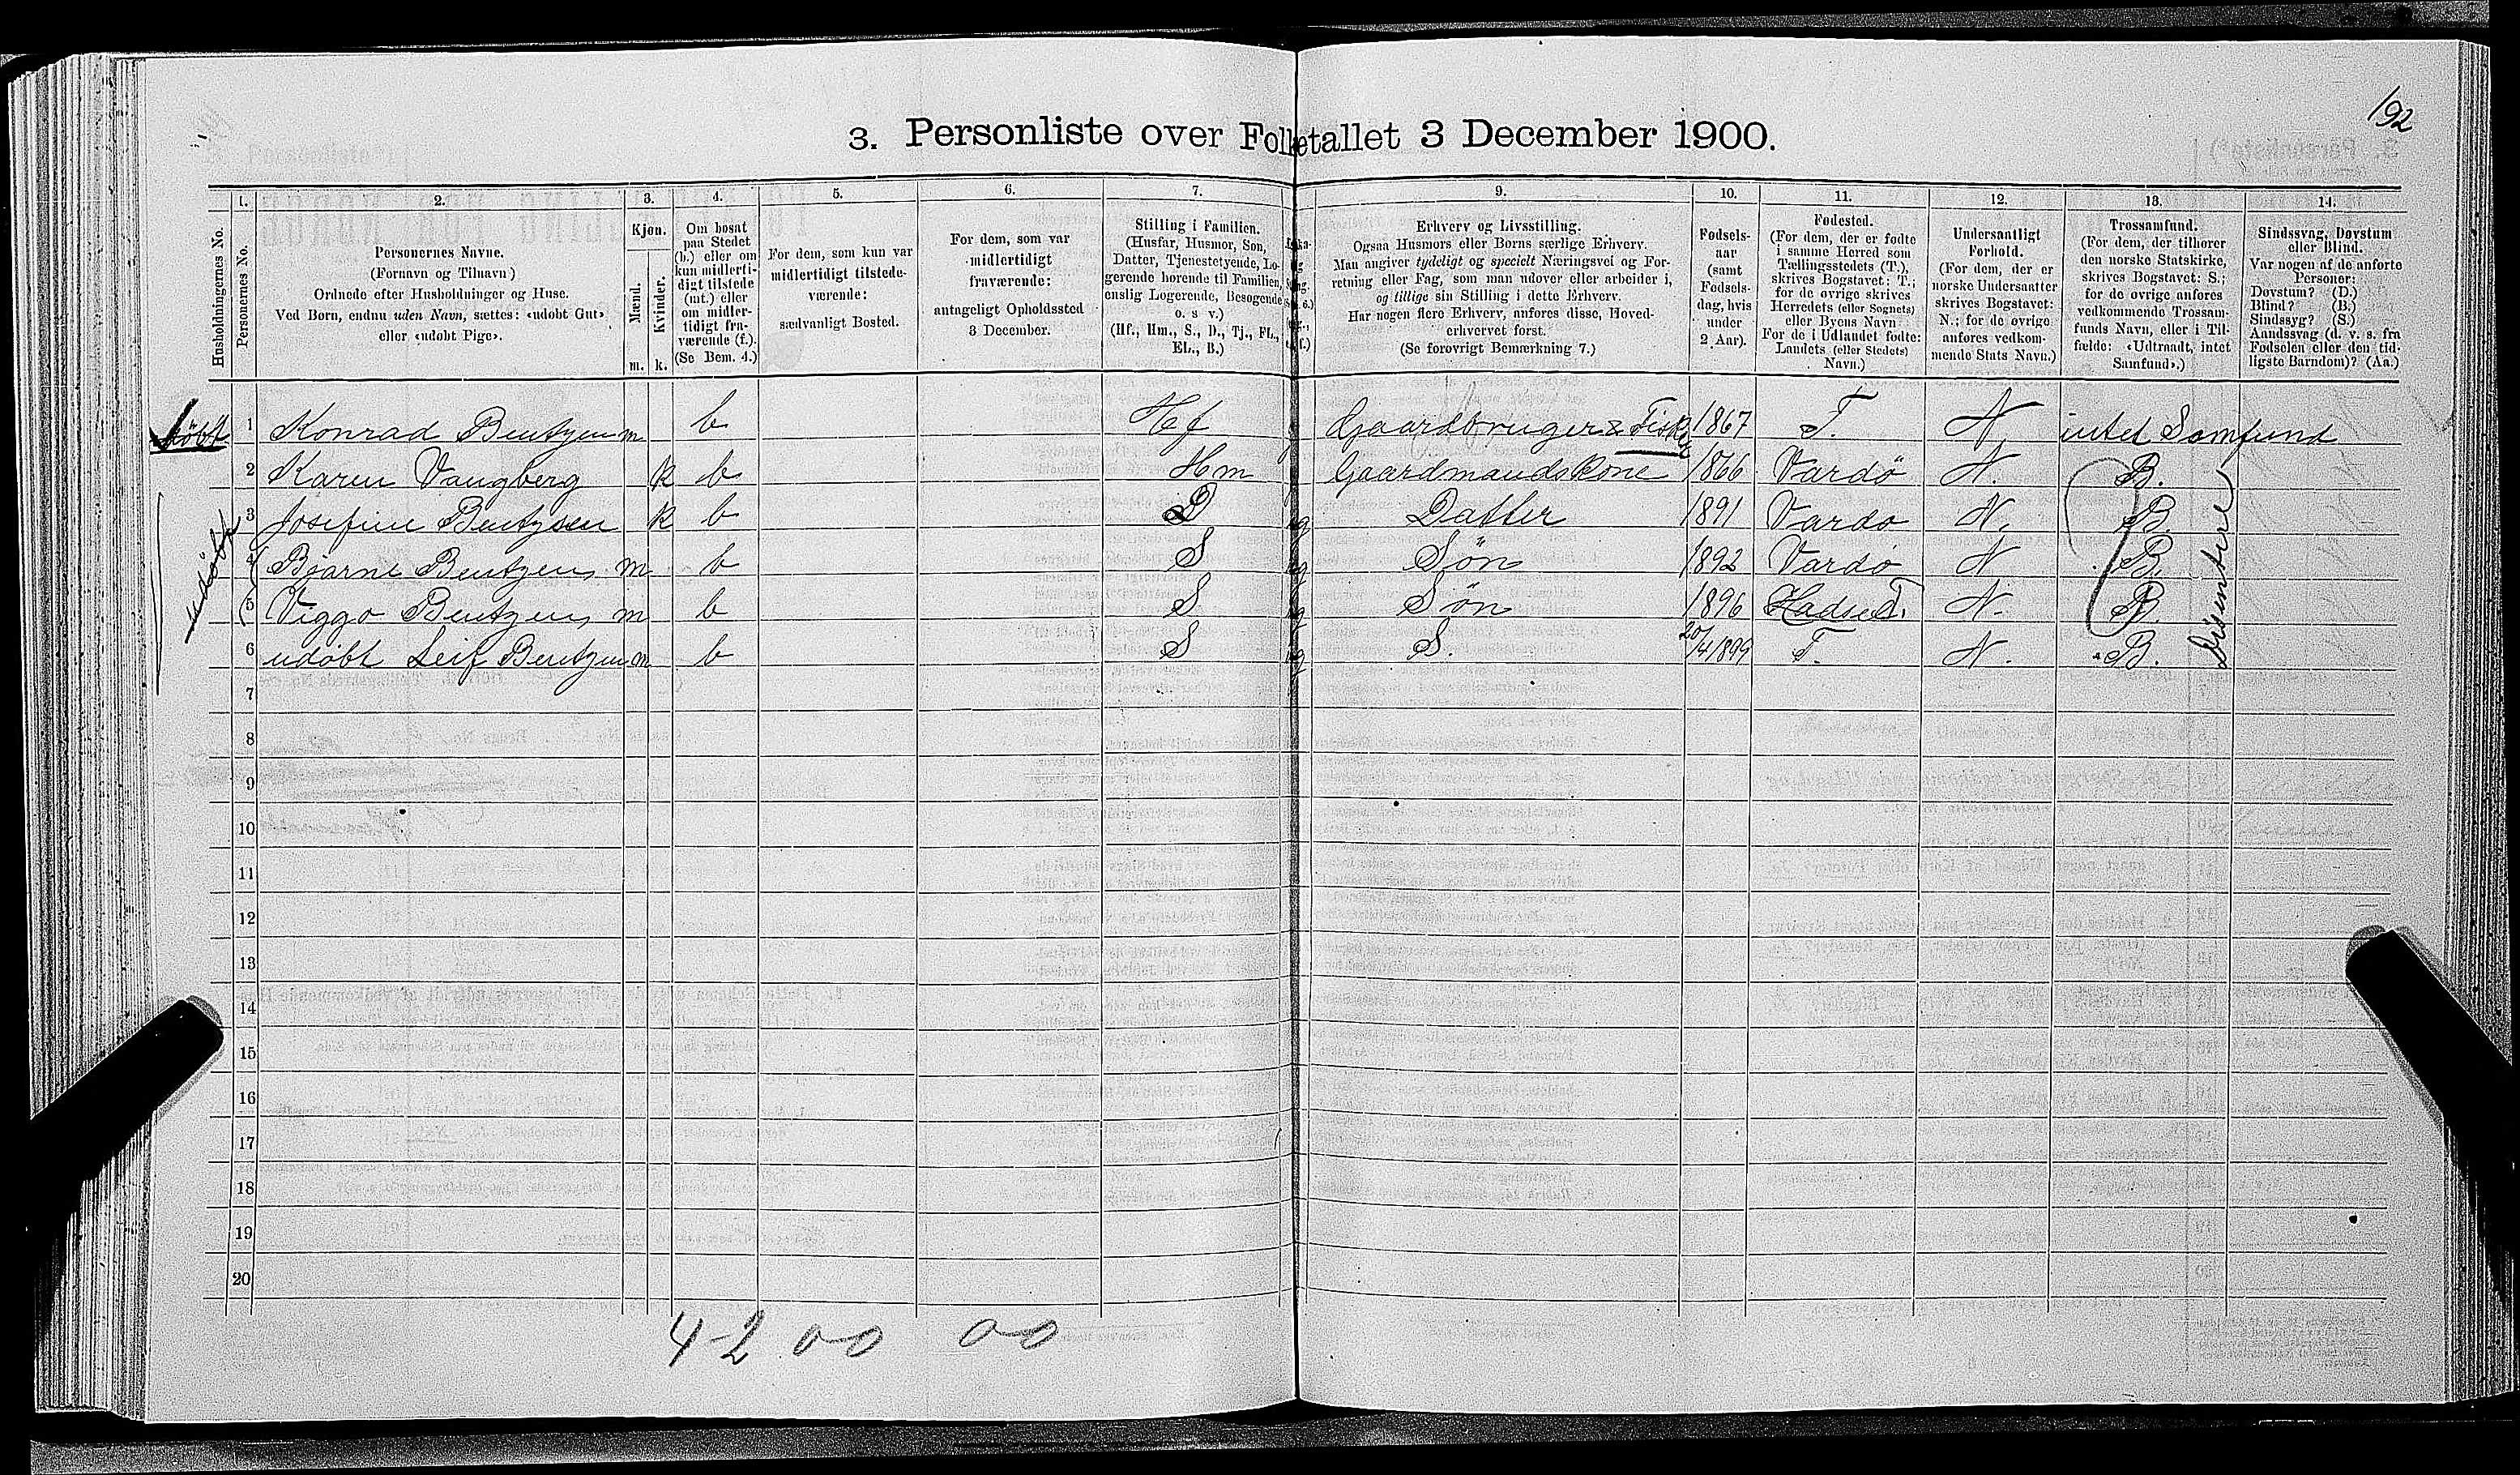 192
3. Personliste over Folketallet 3 December 1900.
Husholdningernes No.
1.
Personernes No.
2.
Personernes Navne.
(Fornavn og Tilnavn)
Ordnede efter Husholdninger og Huse.
Ved Børn, endnu uden Navn, sættes: «udøbt Gut»
eller «udøbt Pige».
3.
Kjøn.
Mænd.
Kvinder.
m. k.
4.
Om bosat
paa Stedet
(b.) eller om
kun midlerti-
digt tilstede
(mt.) eller
om midler-
tidigt fra-
værende (f.).
(Se Bem. 4.)
5.
For dem, som kun var
midlertidigt tilstede-
værende:
sædvanligt Bosted.
6.
For dem, som var
midlertidigt
fraværende:
antageligt Opholdssted
3 December.
7.
Stilling i Familien.
(Husfar, Husmor, Søn,
Datter, Tjenestetyende, Lo-
gerende hørende til Familien,
enslig Logerende, Besøgende
o. s v.)
(Hf., Hm., S., D., Tj., FL.,
EL., B.)
9.
Erhverv og Livsstilling.
Ogsaa Husmors eller Børns særlige Erhverv.
Man angiver tydeligt og specielt Næringsvei og For-
retning eller Fag, som man udøver eller arbeider i,
og tillige sin Stilling i dette Erhverv.
Har nogen flere Erhverv, anføres disse, Hoved-
erhvervet først.
(Se forøvrigt Bemærkning 7.)
10.
Fødsels-
aar
(samt
Fødsels-
dag, hvis
under
2 Aar).
11.
Fødested.
(For dem, der er fødte
i samme Herred som
Tællingsstedets (T.),
skrives Bogstavet: T.;
for de øvrige skrives
Herredets (eller Sognets)
eller Byens Navn
For de i Udlandet fødte:
Landets (eller Stedets)
Navn.)
12.
Undersaatligt
Forhold.
(For dem, der er
norske Undersaatter
skrives Bogstavet:
N.; for de øvrige
anføres vedkom-
mende Stats Navn.)
13.
Trossamfund.
(For dem, der tilhører
den norske Statskirke,
skrives Bogstavet: S.;
for de øvrige anføres
vedkommende Trossam-
funds Navn, eller i Til-
fælde: «Udtraadt, intet
Samfund».)
14.
Sindssvag, Døvstum
eller Blind.
Var nogen af de anførte
Personer:
Døvstum? (D.)
Blind? (B.)
Sindssyg? (S.)
Aandssvag (d. v. s. fra
Fødselen eller den tid-
ligste Barndom)? (Aa.)
døbt 1 Konrad Bentzen m b Hf Gaardbruger & Fisker 1867 T. N. intet Samfund
2 Karen Vangberg k b Hm Gaardmandskone 1866 Vardö N. B.
3 Josefine Bentzsen k b D ug Datter 1891 Vardø N. B.
4 Bjarne Bentzen m b S ug Søn 1892 Vardø N B.
5 Viggo Bentzen m b S ug Søn 1896 Hadsel T. N. B.
6 udøbt Leif Bentzen m b S ug S. 20/4 1899 T. N. B.
udøbt
Disentere
7
8
9
10
11
12
13
14
15
16
17
18
19
20
4-2 00 00